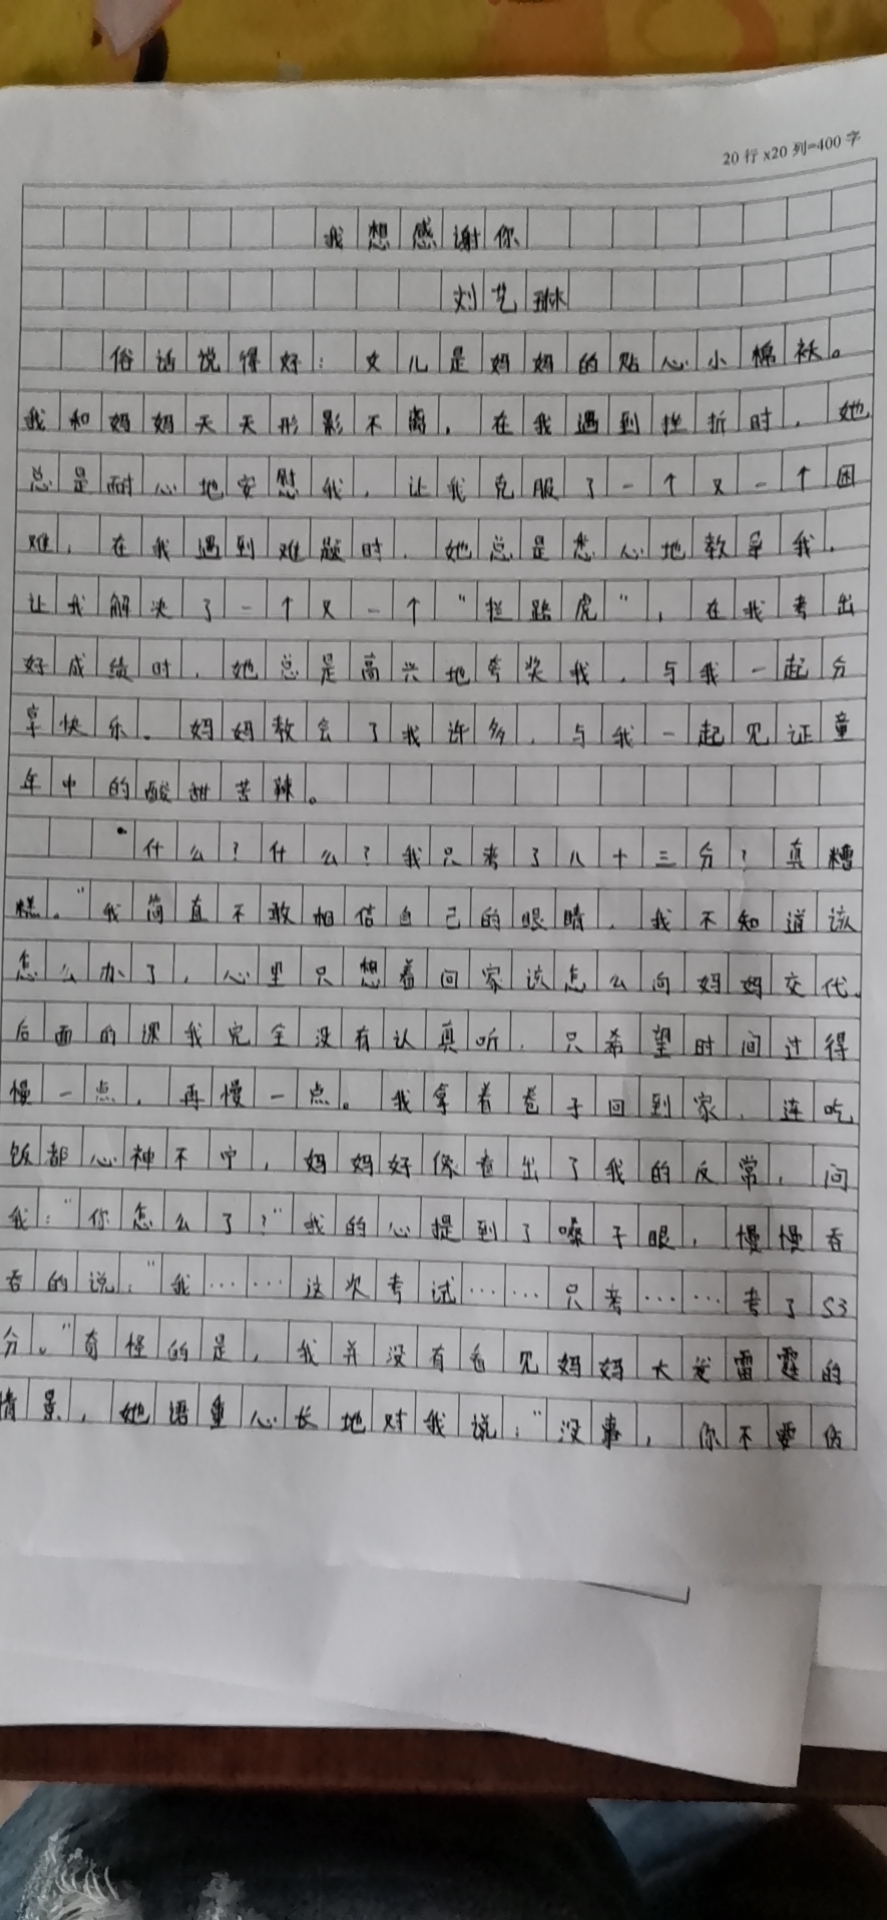 20行x20列=400字
我想感谢你
刘艺琳
俗话说得好：女儿是妈妈的贴心小棉袄。
我和妈妈天天形影不离，在我遇到挫折时，她
总是耐心地安慰我，让我克服了一个又一个困
难，在我遇到难题时，她总是悉心地教导我，
让我解决了一个又一个“拦路虎”，在我考出
好成绩时，她总是高兴地夸奖我，与我一起分
享快乐。妈妈教会了我许多，与我一起见证童
年中的酸甜苦辣。
“什么？什么？我只考了八十三分？真糟
糕。”我简直不敢相信自己的眼睛，我不知道该
怎么办了，心里只想着回家该怎么向妈妈交代。
后面的课我完全没有认真听，只希望时间过得
慢一点，再慢一点。我拿着卷子回到家，连吃
饭都心神不宁，妈妈好像看出了我的反常，问
我：“你怎么了？”我的心提到了嗓子眼，慢慢吞
吞的说：“我……这次考试……只考……考了83
分。”奇怪的是，我并没有看见妈妈大发雷霆的
情景，她语重心长地对我说：“没事，你不要伤